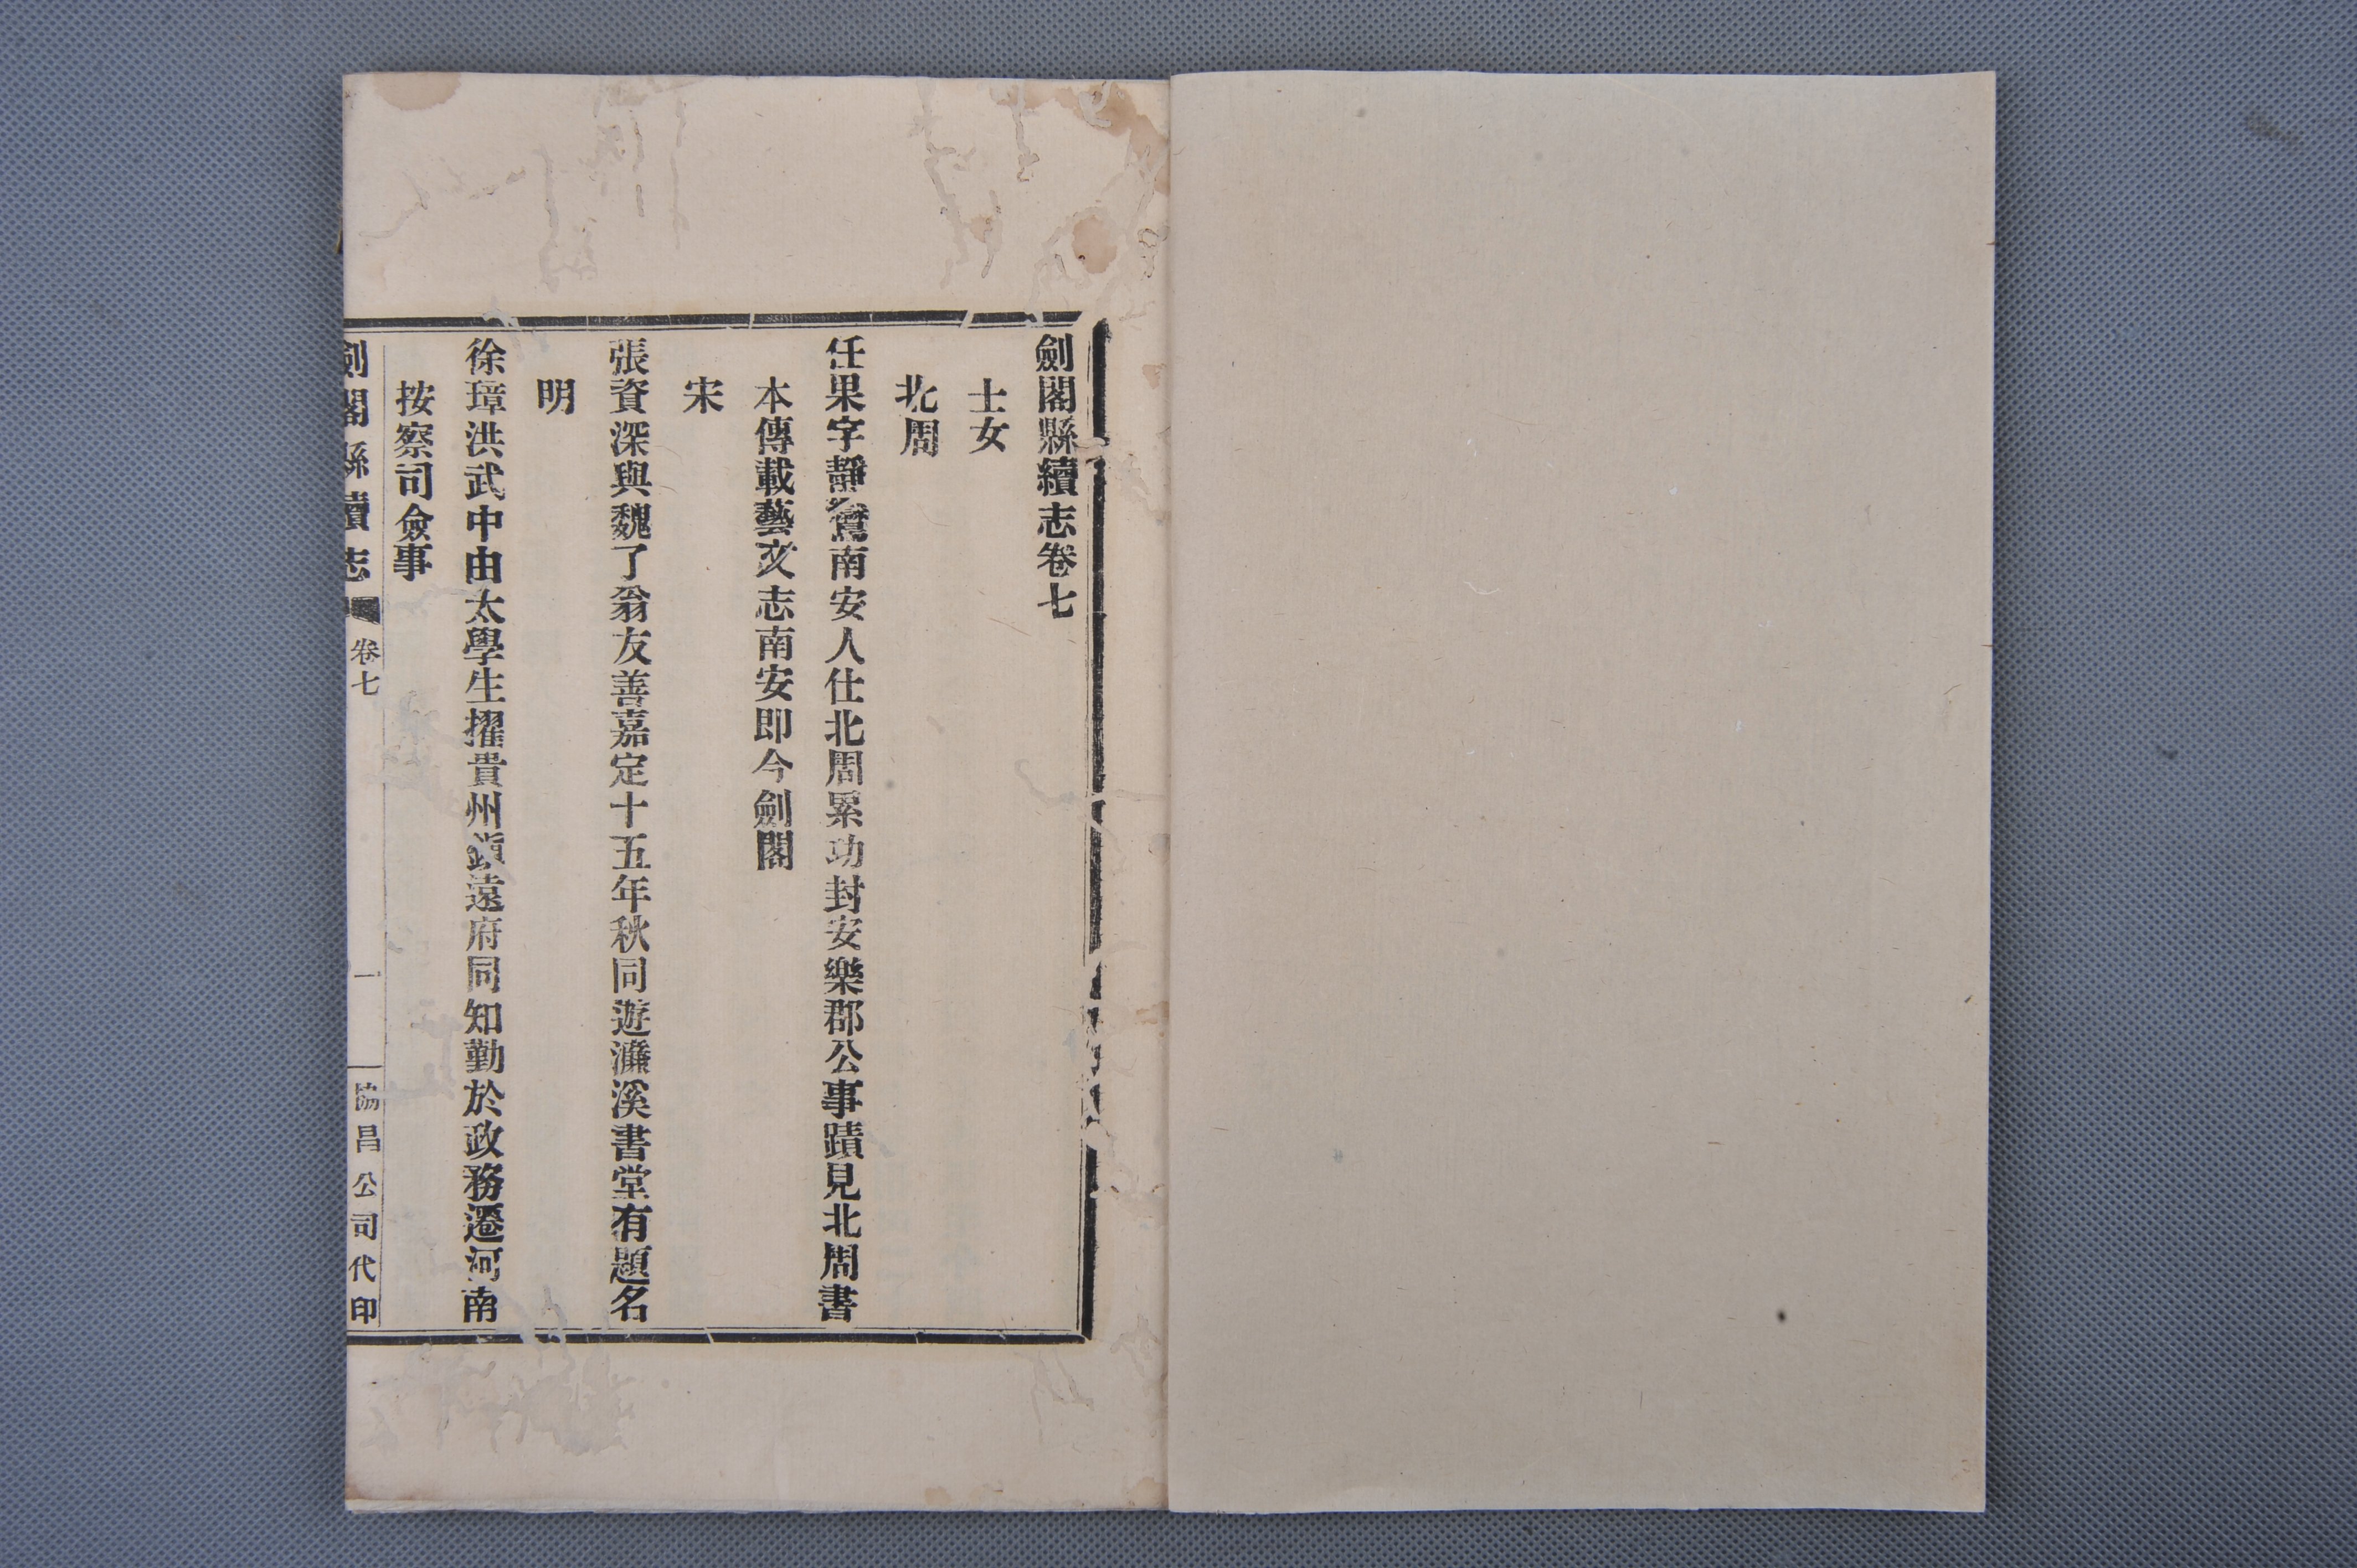 劍閣縣續志卷七
士女
北周
任果字靜鸞南安人仕北周累功封安樂郡公事蹟見北周書
本傳載藝文志南安即今劍閣
宋
張資深與魏了翁友善嘉定十五年秋同遊濂溪書堂有題名
明
徐璋洪武中由太學生擢貴州鎮遠府同知勤於政務遷河南
按察司僉事
劍閣縣續志 卷七 一 協昌公司代印